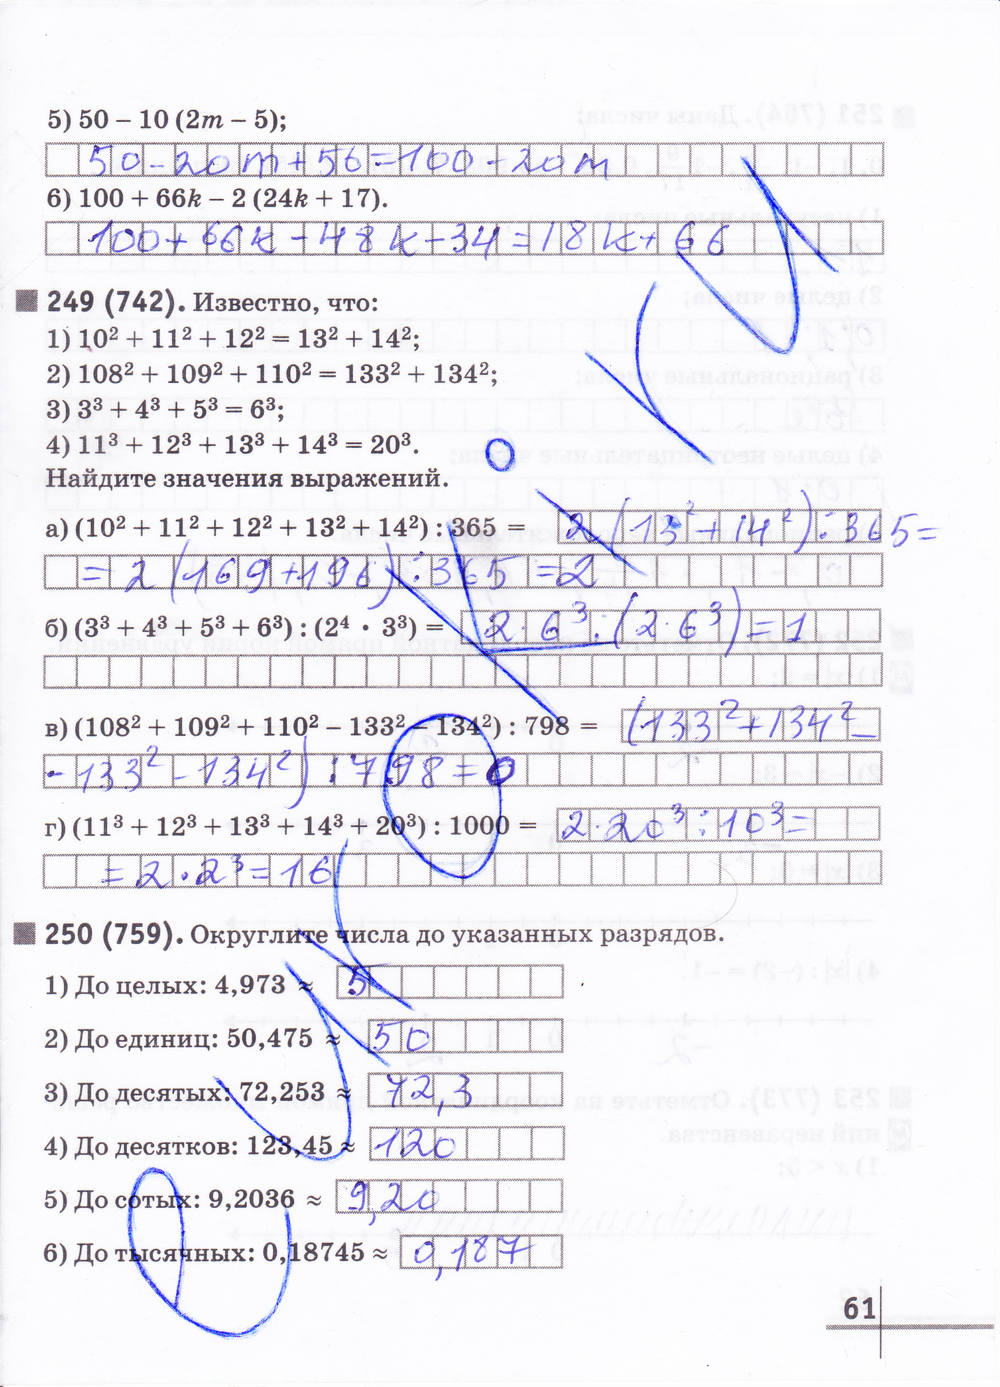 5) 50 – 10 (2m – 5);
50-20m+50=100-20m
6) 100 + 66k – 2 (24k + 17).
100+66k-48k-34=18k+66
249 (742). Известно, что:
1) 10² + 11² + 12² = 13² + 14²;
2) 108² + 109² + 110² = 133² + 134²;
3) 3³ + 4³ + 5³ = 6³;
4) 11³ + 12³ + 13³ + 14³ = 20³.
Найдите значения выражений.
а) (10² + 11² + 12² + 13² + 14²) : 365 = 2(13²+14²):365=
=2(169+196):365=2
б) (3³ + 4³ + 5³ + 6³) : (2⁴ · 3³) = 2·6³:(2·6³)=1
в) (108² + 109² + 110² – 133² – 134²) : 798 = (133²+134²–
-133²-134²):798=0
г) (11³ + 12³ + 13³ + 14³ + 20³) : 1000 = 2·20³:10³=
=2·2³=16
250 (759). Округлите числа до указанных разрядов.
1) До целых: 4,973 ≈ 5
2) До единиц: 50,475 ≈ 50
3) До десятых: 72,253 ≈ 72,3
4) До десятков: 123,45 ≈ 120
5) До сотых: 9,2036 ≈ 9,20
6) До тысячных: 0,18745 ≈ 0,187
61